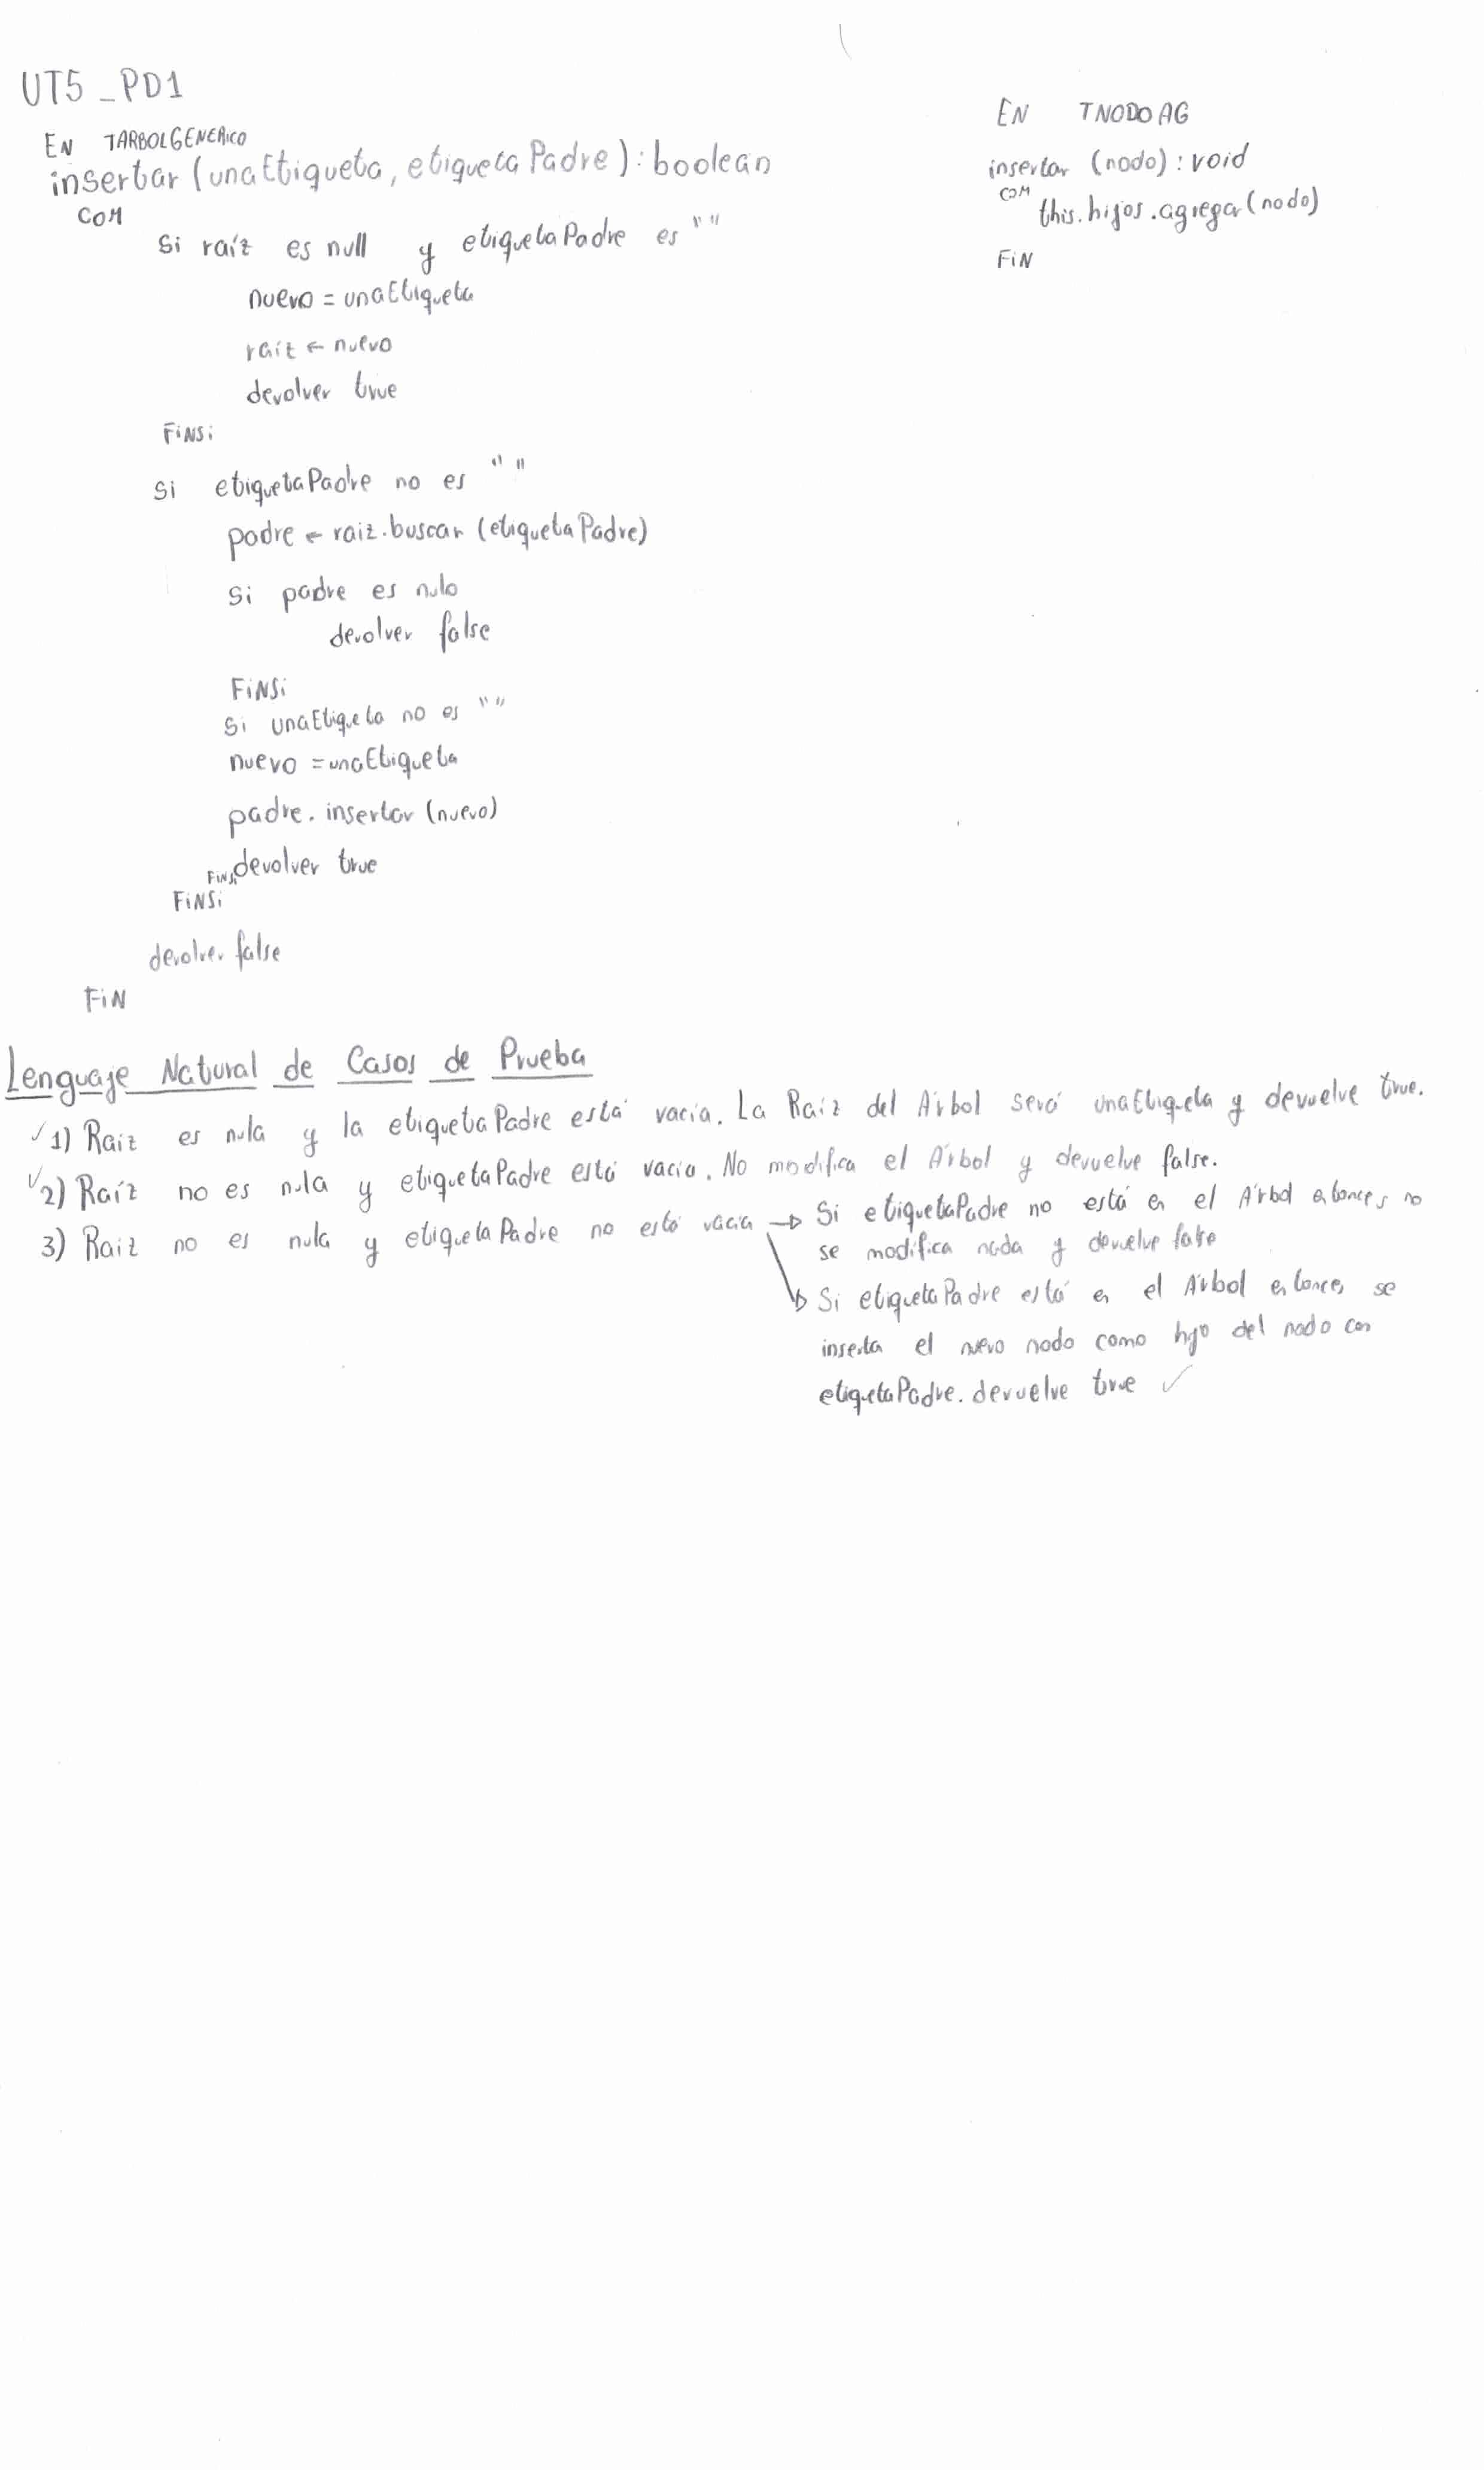 UT5_PD1
EN TARBOLGENERICO
insertar (unaEtiqueta, etiquetaPadre) : boolean
COM
Si raíz es null y etiquetaPadre es ""
nuevo = unaEtiqueta
raíz ← nuevo
devolver true
FINSi
Si etiquetaPadre no es ""
padre ← raiz.buscar (etiquetaPadre)
Si padre es nulo
devolver false
FINSi
Si unaEtiqueta no es ""
nuevo = unaEtiqueta
padre.insertar (nuevo)
devolver true
FINSi
FINSi
devolver false
FIN
EN TNODOAG
insertar (nodo) : void
COM
this.hijos.agregar (nodo)
FIN
Lenguaje Natural de Casos de Prueba
✓ 1) Raiz es nula y la etiquetaPadre está vacía. La Raíz del Árbol será unaEtiqueta y devuelve true.
✓ 2) Raíz no es nula y etiquetaPadre está vacía. No modifica el Árbol y devuelve false.
3) Raiz no es nula y etiquetaPadre no está vacía → Si etiquetaPadre no está en el Árbol entonces no
se modifica nada y devuelve false
→ Si etiquetaPadre está en el Árbol entonces se
inserta el nuevo nodo como hijo del nodo con
etiquetaPadre. devuelve true ✓